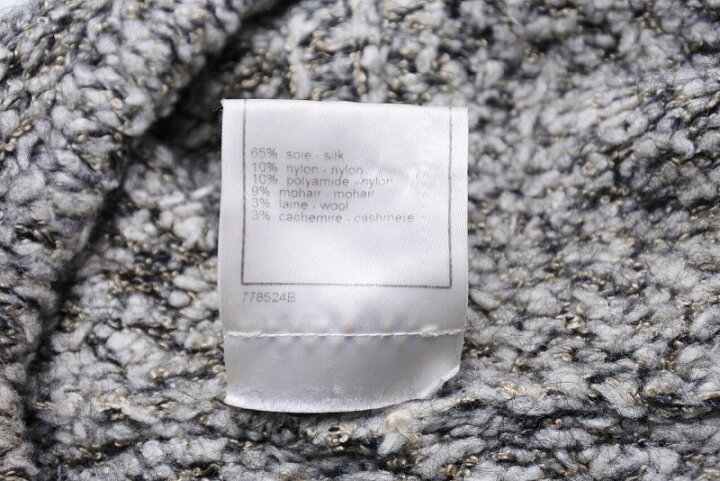 65% soie - silk
10% nylon - nylon
10% polyamide - nylon
9% mohair - mohair
3% laine - wool
3% cachemire - cashmere
778524B